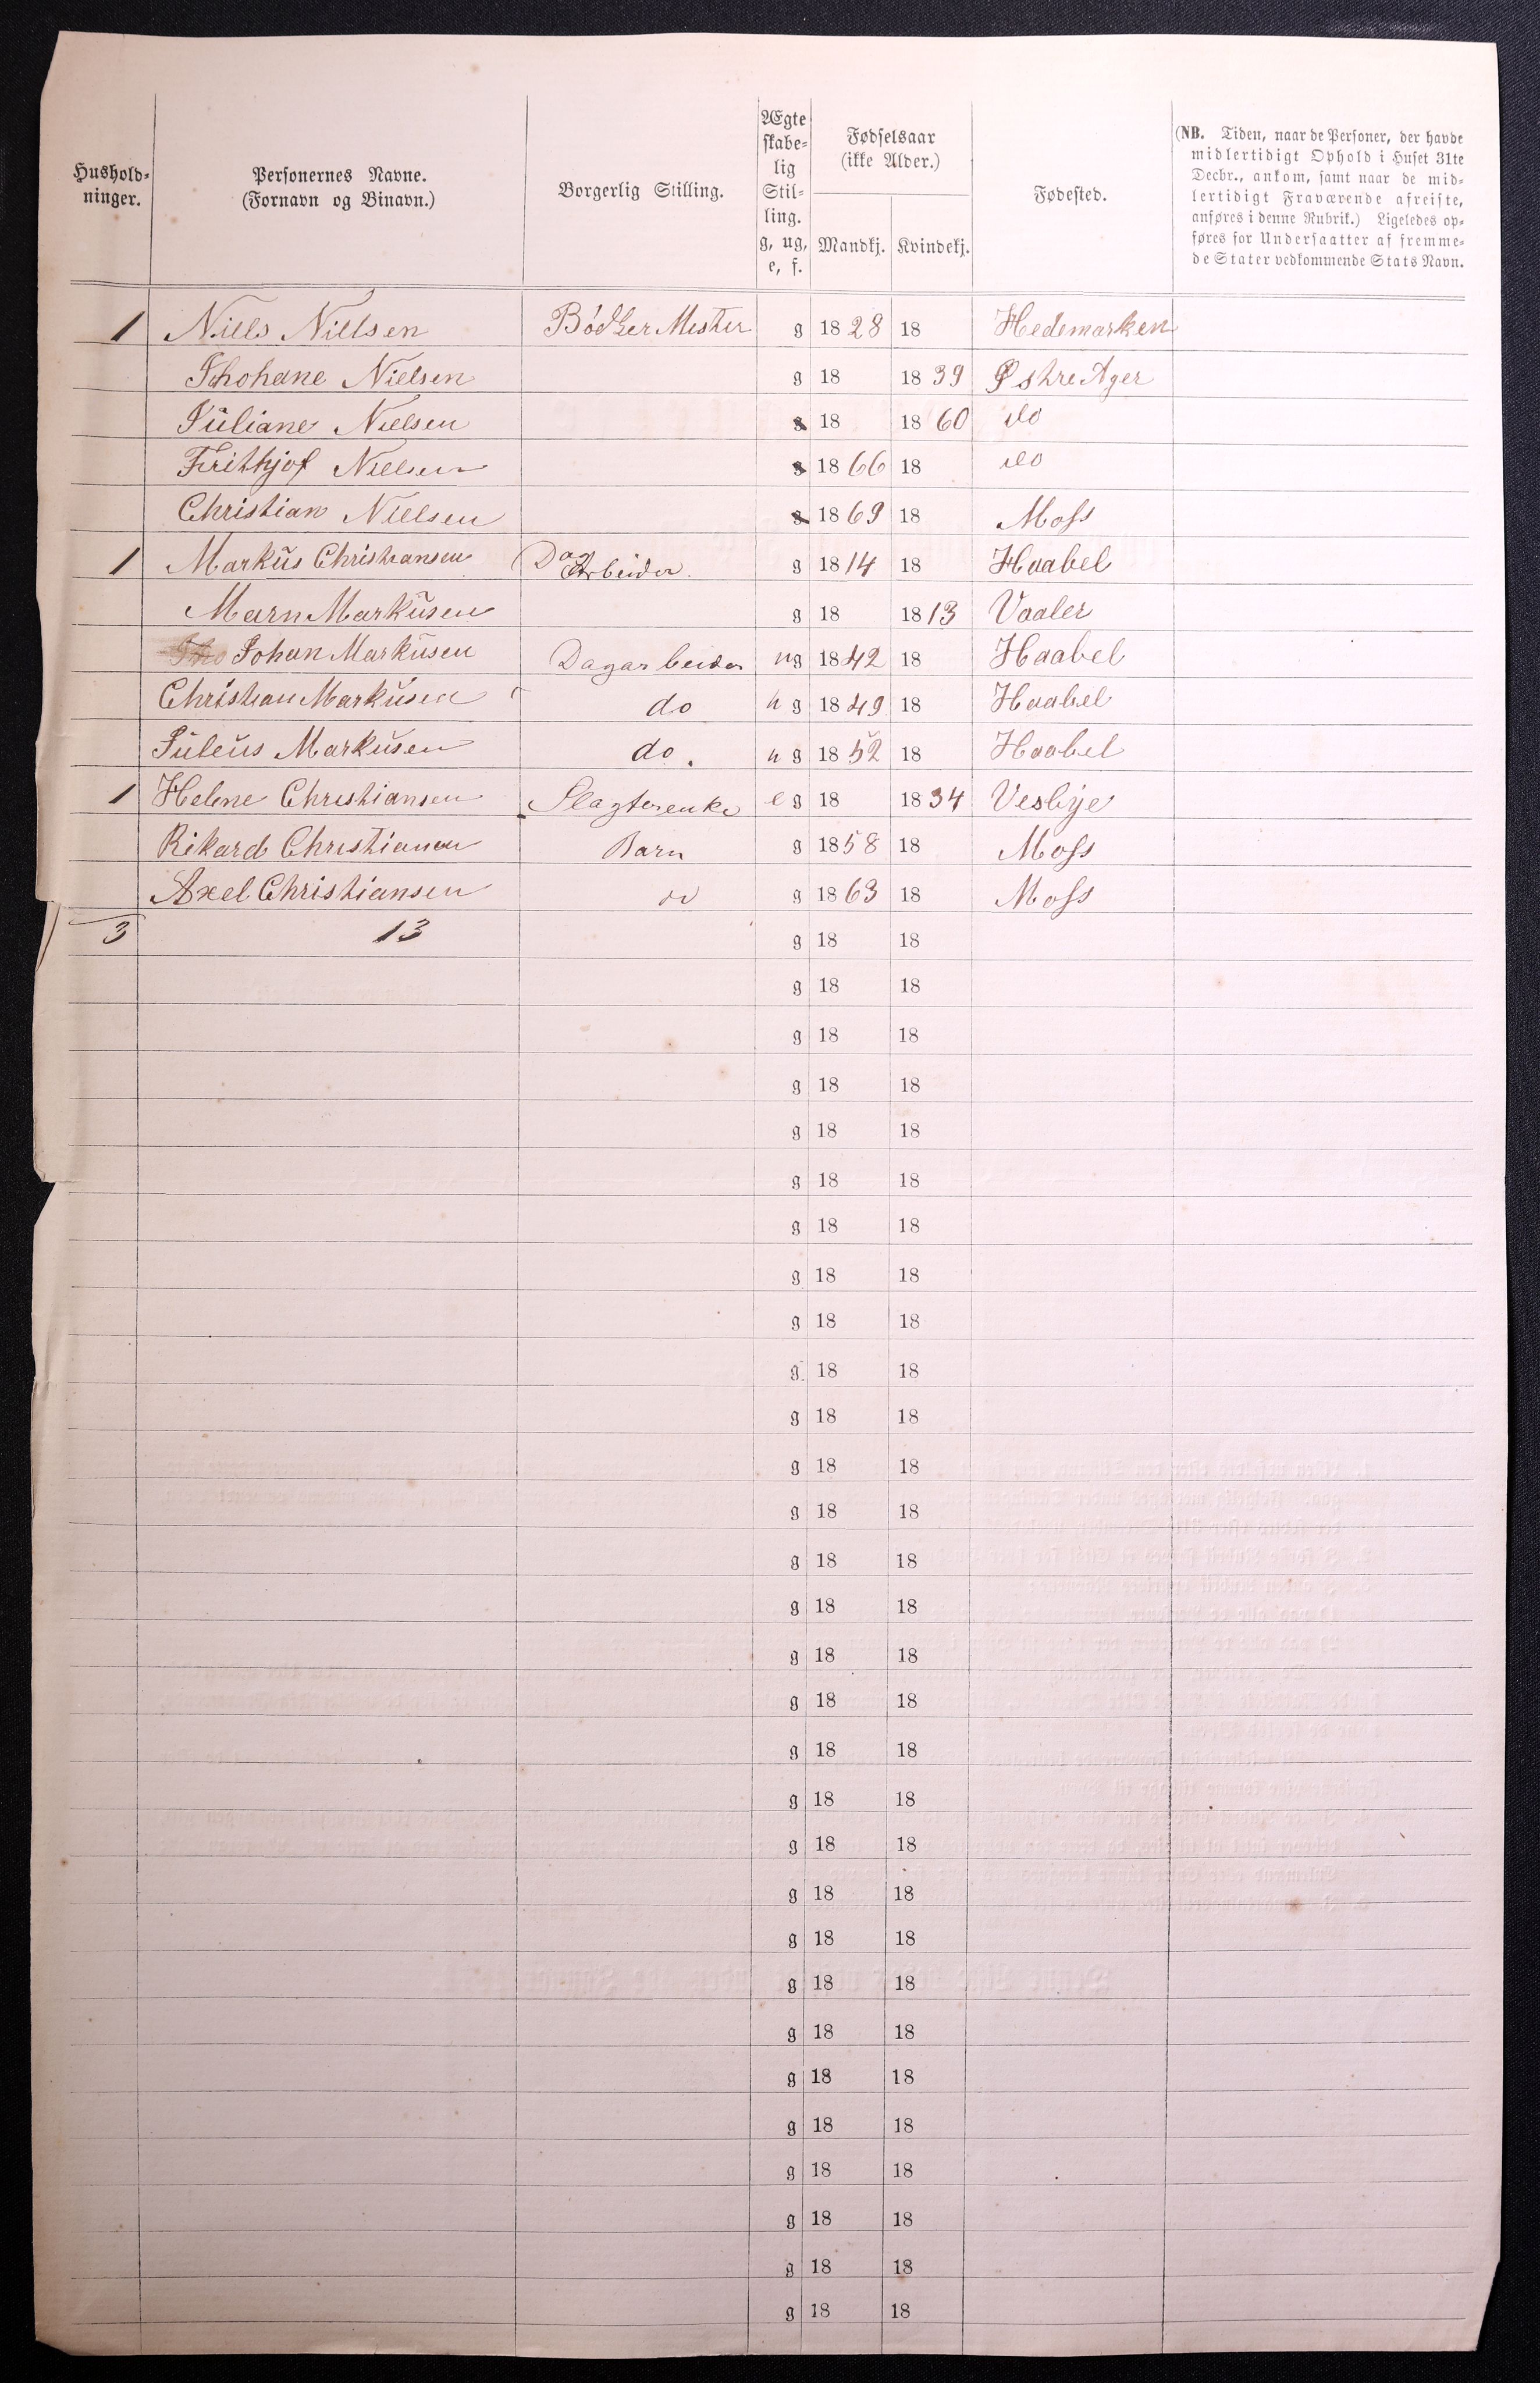 Hushold-
ninger.
Personernes Navne.
(Fornavn og Binavn.)
Borgerlig Stilling.
Ægte
skabe-
lig
Stil-
ling.
g, ug,
e, f.
Fødselsaar
(ikke Alder.)
Mandkj. Kvindekj.
Fødested.
(NB. Tiden, naar de Personer, der havde
midlertidigt Ophold i Huset 31te
Decbr., ankom, samt naar de mid-
lertidigt Fraværende afreiste,
anføres i denne Rubrik.) Ligeledes op-
føres for Undersaatter af fremme-
de Stater vedkommende Stats Navn.
1 Niels Nielsen Bødker Mester g 1828 18 Hedemarken
Thohane Nielsen g 18 1839 Østre Ager
Juliane Nielsen g 18 1860 do
Frithjof Nielsen g 1866 18 do
Christian Nielsen g 1869 18 Moss
1 Markus Christiansen Dag Arbeider g 1814 18 Haabel
Marn Markusen g 18 1813 Vaaler
Johan Markusen Dagarbeider ug 1842 18 Haabel
Christian Markusen do ug 1849 18 Haabel
Juleus Markusen do. ug 1852 18 Haabel
1 Helene Christiansen Slagterenke eg 18 1834 Vesbye
Rikard Christiansen Barn g 1858 18 Moss
Axel Christiansen do g 1863 18 Moss
3 13 g 18 18
g 18 18
g 18 18
g 18 18
g 18 18
g 18 18
g 18 18
g 18 18
g 18 18
g 18 18
g 18 18
g 18 18
g 18 18
g 18 18
g 18 18
g 18 18
g 18 18
g 18 18
g 18 18
g 18 18
g 18 18
g 18 18
g 18 18
g 18 18
g 18 18
g 18 18
g 18 18
g 18 18
g 18 18
g 18 18